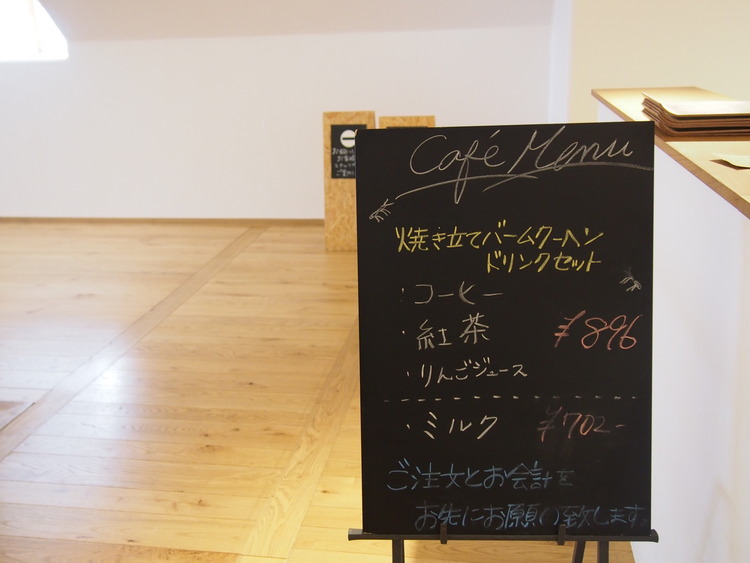 Café Menu
焼き立てバームクーヘン
ドリンクセット
・コーヒー
・紅茶 ¥896
・りんごジュース
・ミルク ¥702-
ご注文とお会計を
お先にお願い致します。